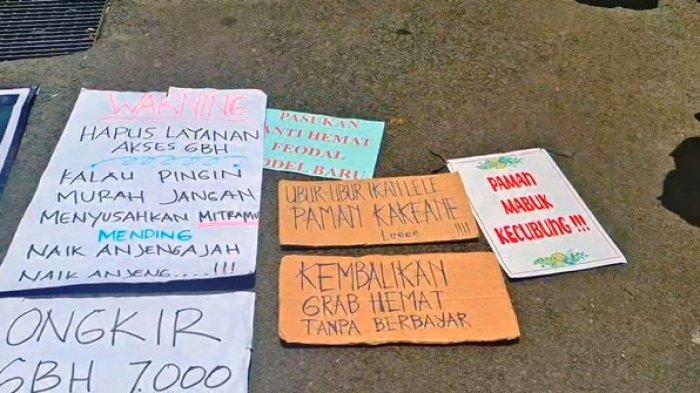 WARNINE
HAPUS LAYANAN
AKSES GBH
KALAU PINGIN
MURAH JANGAN
MENYUSAHKAN MITRAMU
MENDING
NAIK ANJENGAJAH
NAIK ANJENG....!!!
ONGKIR
GBH 7.000
PASUKAN
ANTI HEMAT
FEODAL
ODEL BARU
UBUR-UBUR IKAN LELE
PAMAN KAKEANE
Leeee !!!!
KEMBALIKAN
GRAB HEMAT
TANPA BERBAYAR
PAMAN
MABUK
KECUBUNG !!!